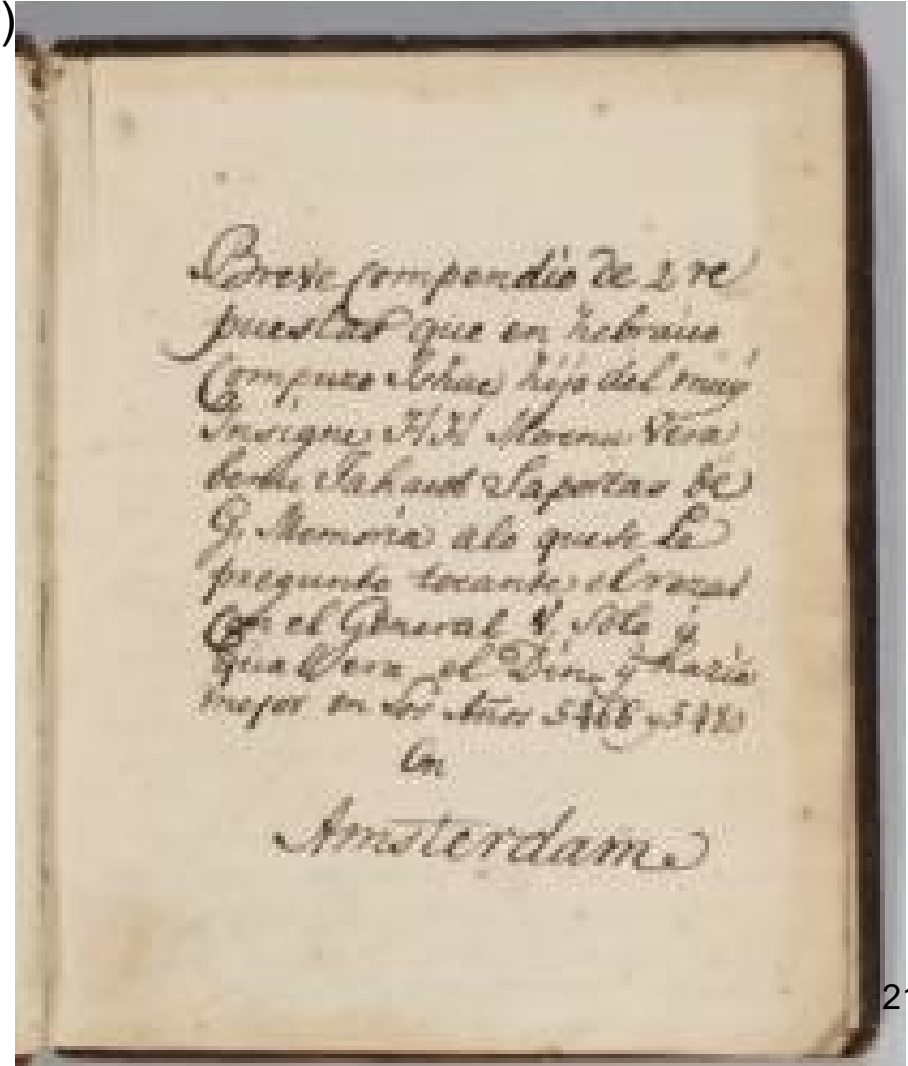 )
Breve Compendio de 2 re
puestas que en hebraico
Compuzo hijo del muy
Insigne H. H. Morenu Vera
benu Jahacob Saportas de
G. Memoria alo que se le
pregunto tocante el rezar
Con el General y Solo y
qual era el Din y hazia
mejor en los Años 5466 y
En
Amsterdam
21